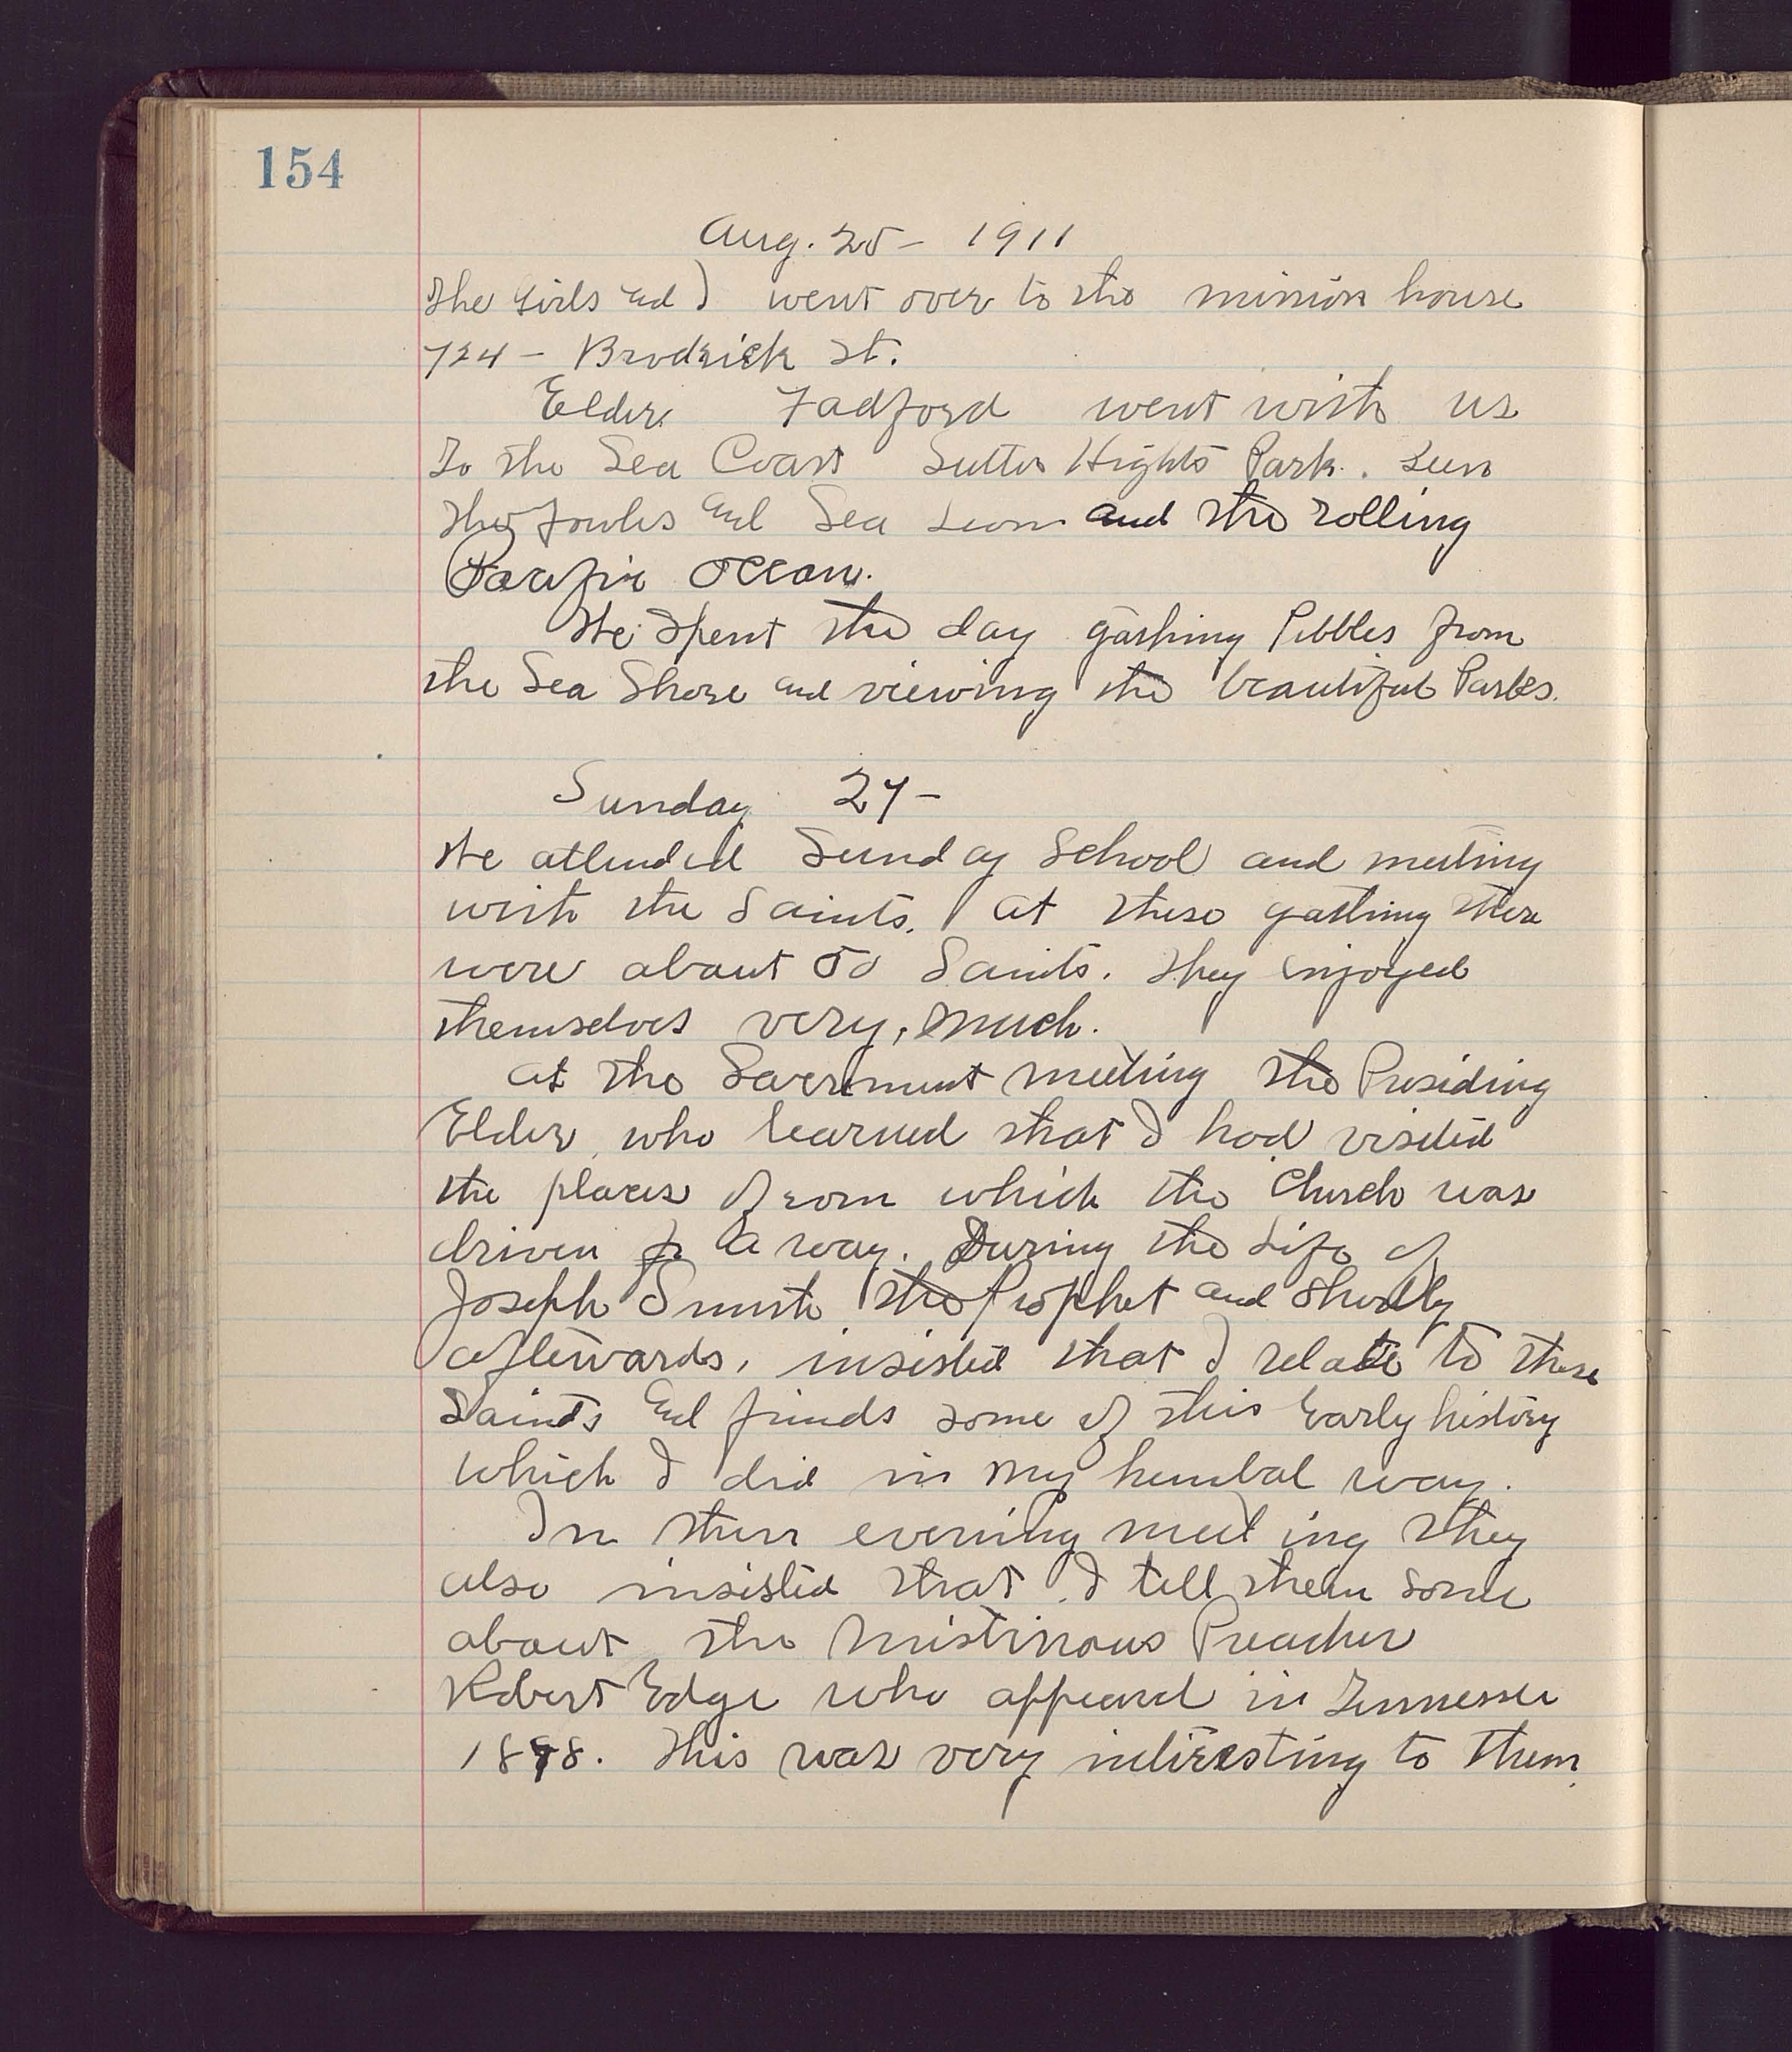 154
Aug. 25 - 1911
The Girls and I went over to the mission house
724 - Brodrick St.
Elder Tadford went with us
To the Sea Coast Sutter Hights Park. Seen
the fowles and Sea Lions and the rolling
Pacific Ocean.
We spent the day gathing Pebbles from
the Sea Shore and viewing the beautiful Parks.
Sunday 27 -
We attended Sunday School and meeting
with the Saints. At these gathring there
were about 50 Saints. They enjoyed
themselves very, much.
At the Sacrement meeting the Presiding
Elder, who learned that I had visited
the places from which the Church was
driven a way. During the Life of
Joseph Smith the Prophet and Shortly
aftewards, insisted that I relate to these
Saints and friends some of this Early history
which I did in my humbal way.
In their evening meeting they
also insisted that I tell them some
about the Mistirious Preacher
Robert Edge who appeared in Tennessee
1878. This was very intiresting to them.